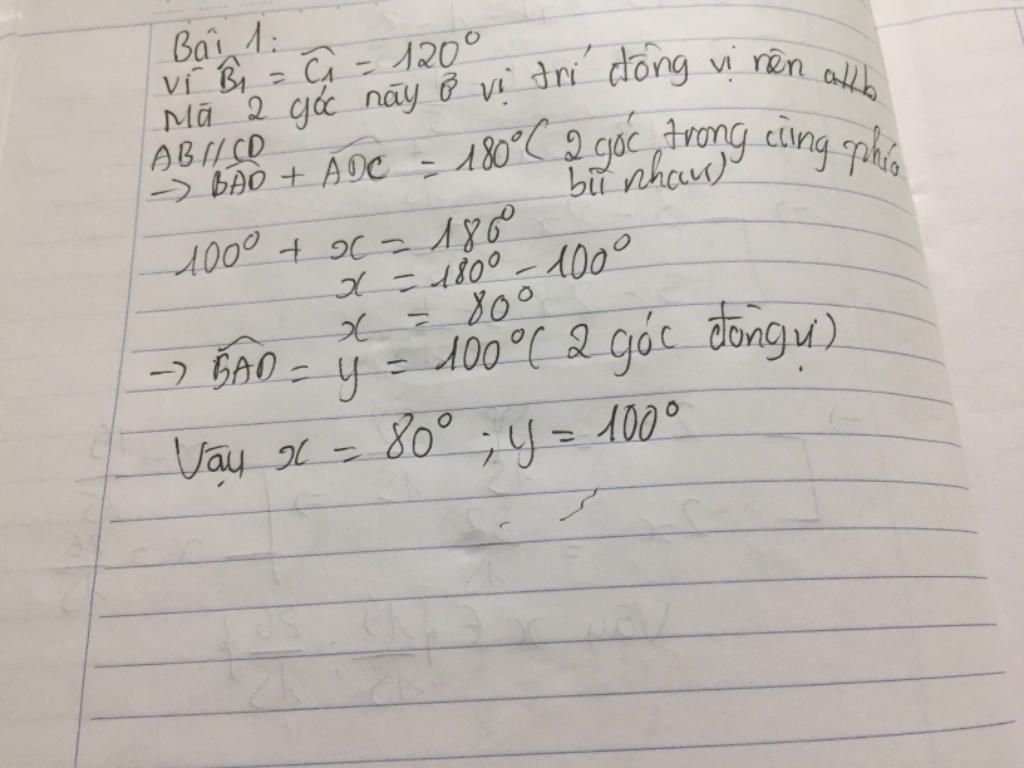 Bài 1:
Vì B̂₁ = Ĉ₁ = 120°
Mà 2 góc này ở vị trí đồng vị nên a//b
AB//CD
→ BAD + ADC = 180° ( 2 góc trong cùng phía
bù nhau)
100° + x = 180°
x = 180° - 100°
x = 80°
→ BAD = y = 100° ( 2 góc đồng vị)
Vậy x = 80° ; y = 100°